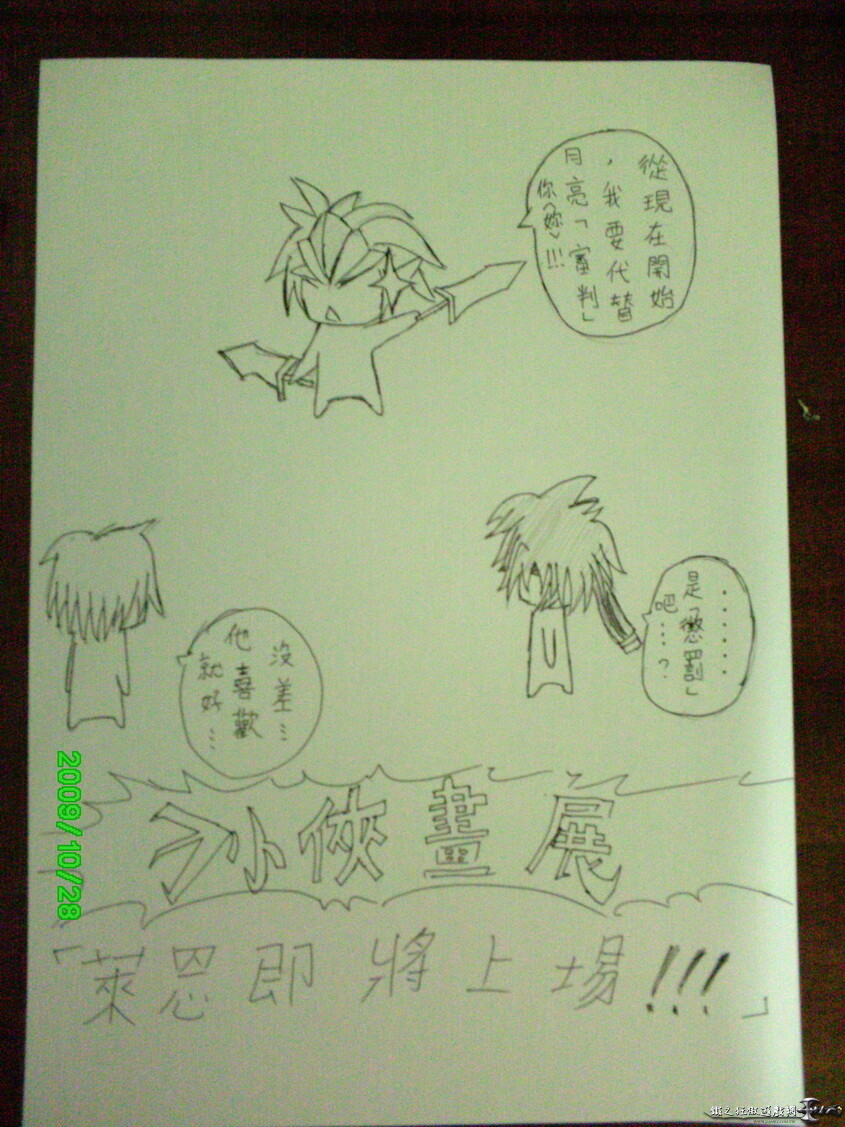 從現在開始
，我要代替
月亮「審判」
你(妳)!!!
........
是「懲罰」
吧...?
沒差...
他喜歡
就好...
小俠畫展
「萊恩即將上場!!!」
2009/10/28